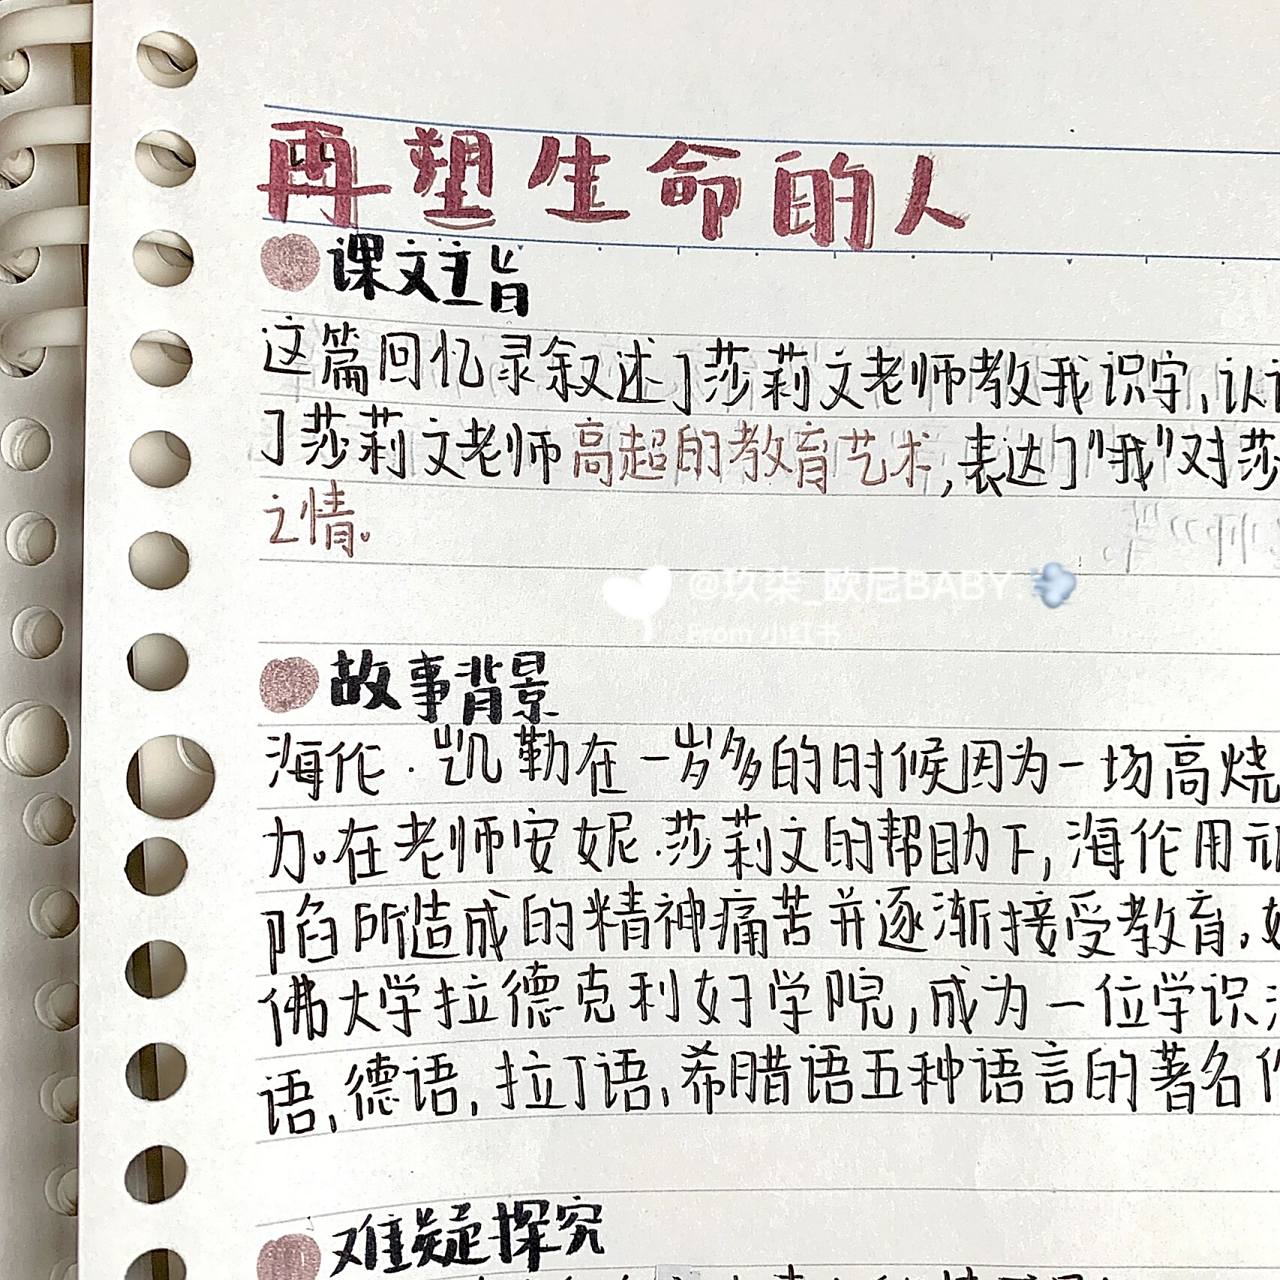 再塑生命的人
课文主旨
这篇回忆录叙述了莎莉文老师教我识字,认
了莎莉文老师高超的教育艺术,表达了"我"对莎
之情。
@玖柒_欧尼BABY.
From 小红书
故事背景
海伦·凯勒在一岁多的时候因为一场高烧
力。在老师安妮·莎莉文的帮助下,海伦用顽
陷所造成的精神痛苦并逐渐接受教育,
佛大学拉德克利女子学院,成为一位学识
语,德语,拉丁语,希腊语五种语言的著名作
难疑探究